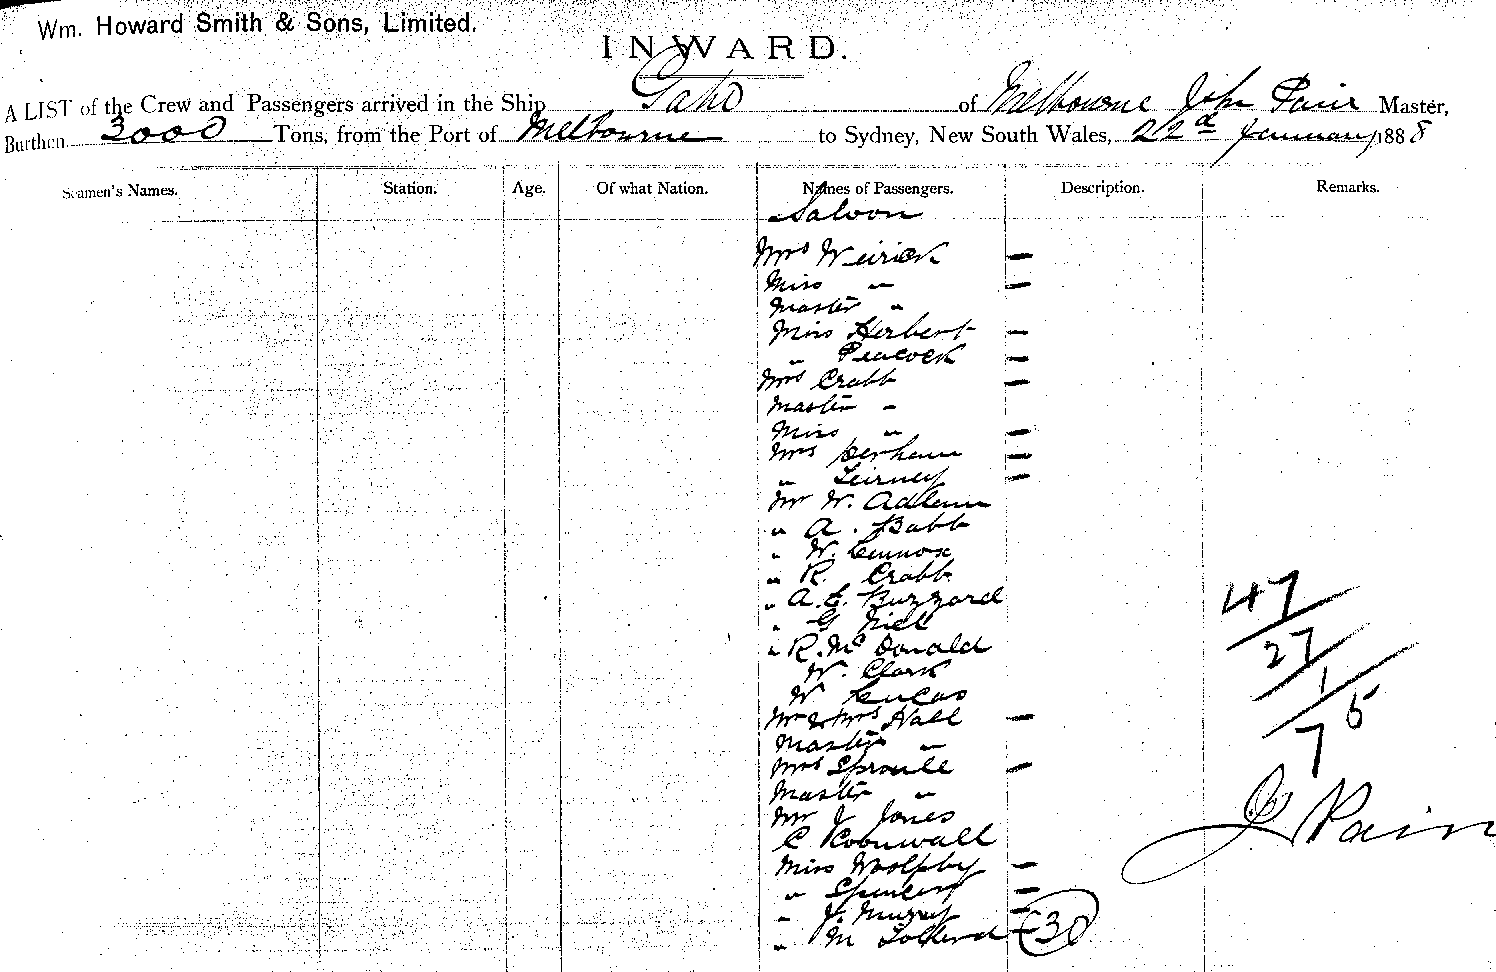 Wm. Howard Smith & Sons, Limited.
INWARD.
A LIST of the Crew and Passengers arrived in the Ship of Melbourne John Pain Master,
Burthen 3000 Tons, from the Port of Melbourne to Sydney, New South Wales, 22d January 1888
Seamen's Names. Station. Age. Of what Nation. Names of Passengers. Description. Remarks.
Saloon
Mrs Weirick —
Miss " —
Master "
Miss Herbert —
" Peacock —
Mrs Crabb —
Master "
Miss " —
Mrs Derham —
" Tierney —
Mr W. Adlam
" A. Babb
" W. Lennox
" R. Crabb
" A.E. Buzzard
" G Niel
" R. Mc Donald
W. Clark
W Lucas
Mr & Mrs Hall —
Master "
Mrs Sproule —
Master "
Mr J Jones
C Cornwall
Miss —
" Spencer —
" J. —
" M
30
47
27
1
5
7
J Pain